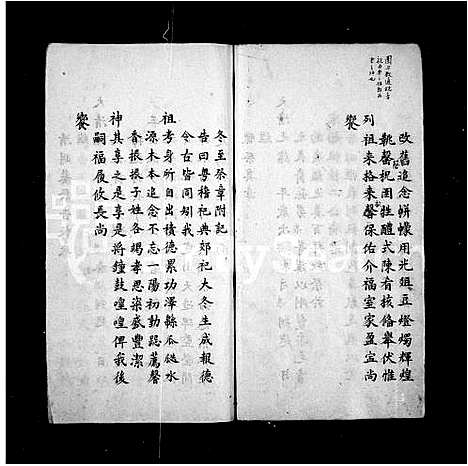 改舊追念帡幪用光俎豆燈燭輝煌
執罄祝困牲醴式陳肴核偹舉伏惟
列祖來格來馨保佑介福室家盈宜尚
饗
冬至祭章附記
告曰粤稽祀典郊祀大冬生成報德
今古皆同矧我
祖考身所自出積德累功澤緜瓜瓞水
源木本追念不忘一陽初動跽薦馨
香振振子姓各竭孝思粢盛豐潔
神其享之是享是將鐘鼓喤喤俾我後
嗣福履攸長尚
饗